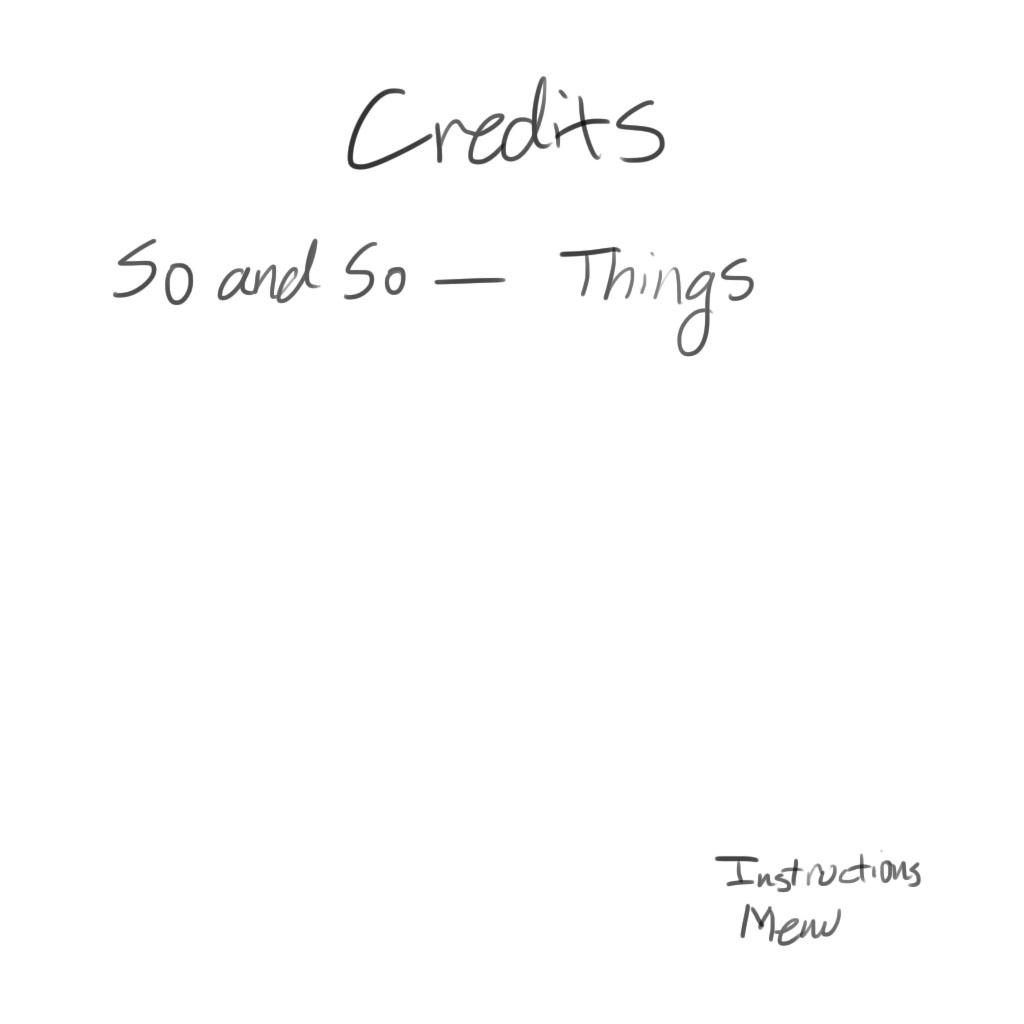 Credits
So and So — Things
Instructions
Menu